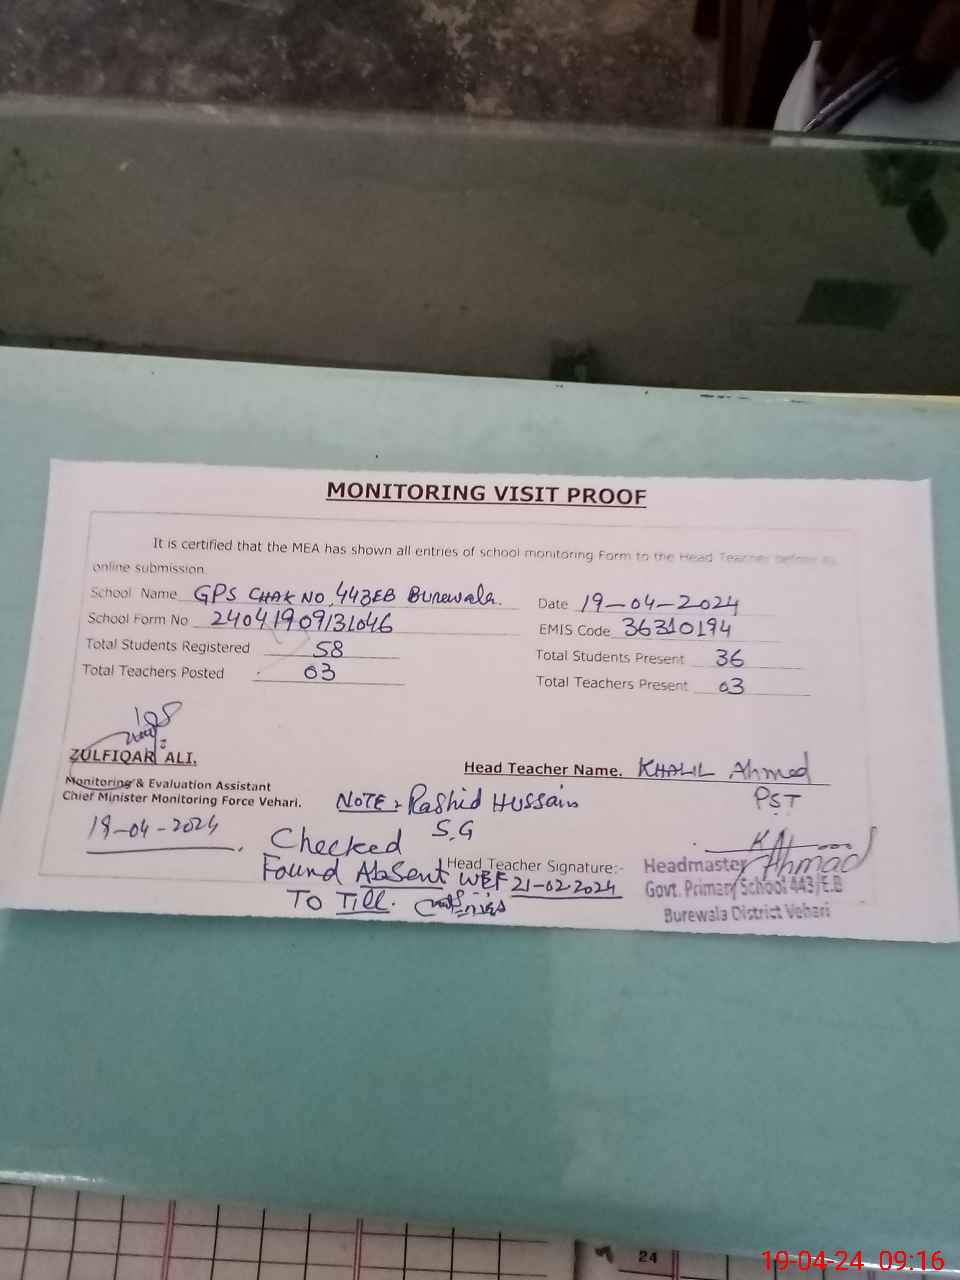 MONITORING VISIT PROOF
It is certified that the MEA has shown all entries of school monitoring Form to the Head Teacher before its
online submission.
School Name GPS CHAK NO. 443EB Burewala.
Date 19-04-2024
School Form No 24041909131046
EMIS Code 36310194
Total Students Registered 58
Total Students Present 36
Total Teachers Posted 03
Total Teachers Present 03
ZULFIQAR ALI.
Monitoring & Evaluation Assistant
Chief Minister Monitoring Force Vehari.
19-04-2024
Head Teacher Name. KHALIL Ahmed
PST
NOTE: Rashid Hussain
S.G
Checked
Found Absent WEF 21-02-2024
To Till.
Head Teacher Signature:-
K Ahmad
Headmaster
Govt. Primary School 443/E.B
Burewala District Vehari
24
19-04-24 09:16